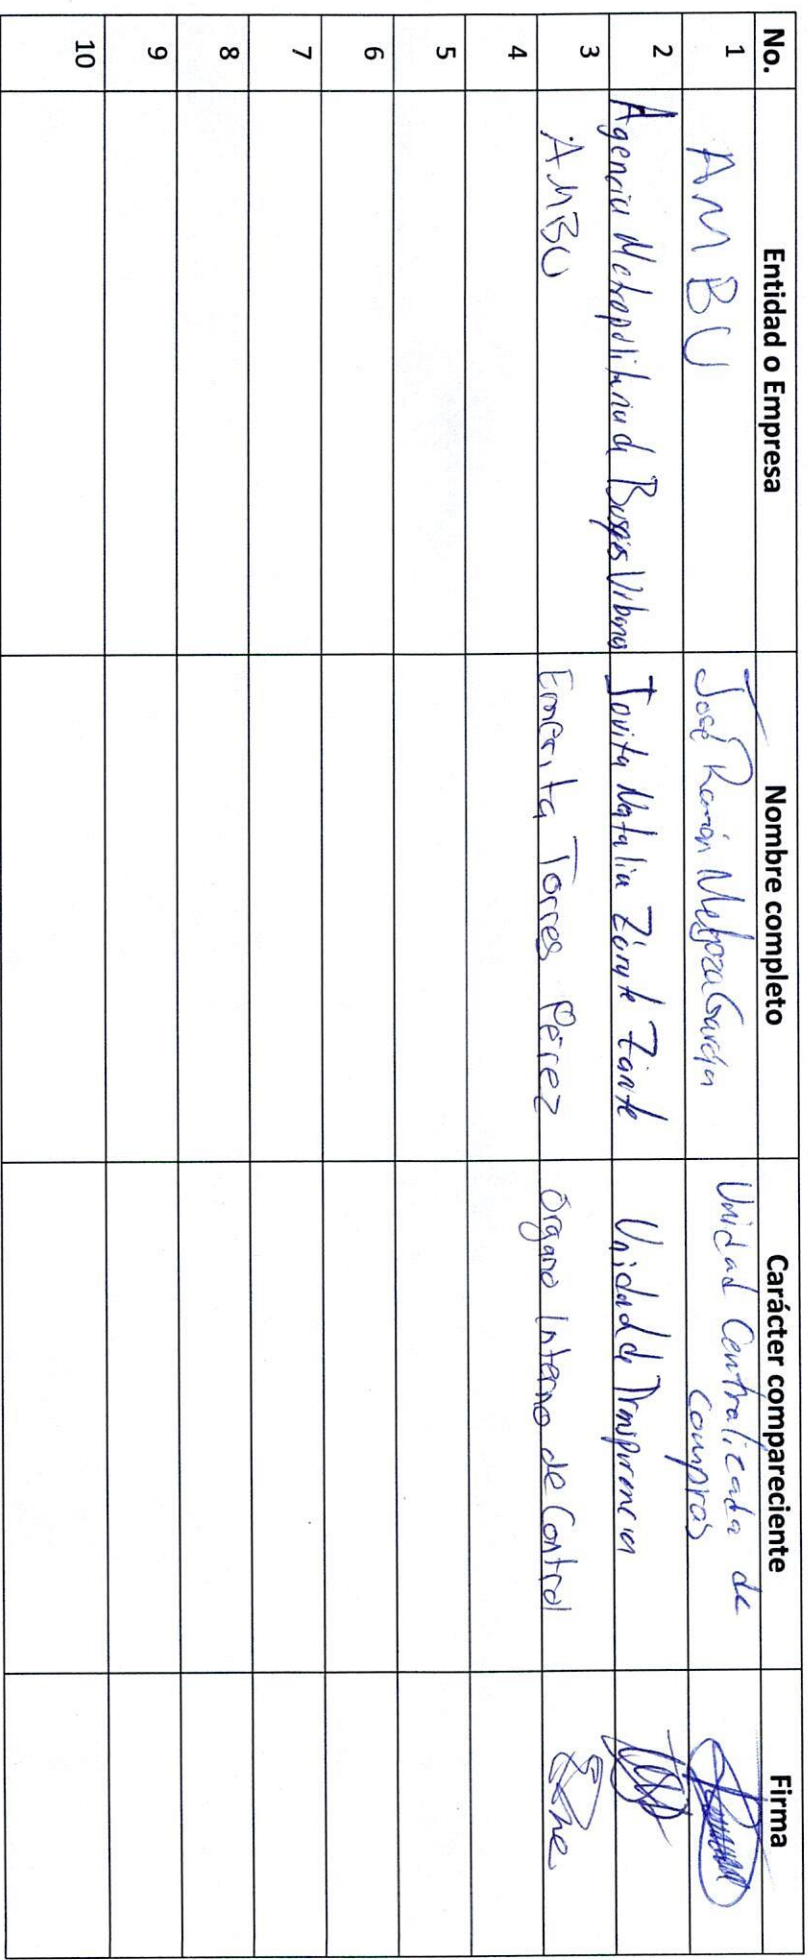 No. Entidad o Empresa Nombre completo Carácter compareciente Firma
1 AMBU José Ramón García Unidad Centralizada de
Compras
2 Agencia Metropolitana de Bosques Urbanos Jovita Natalia Zárate Zárate Unidad de Transparencia
3 AMBU Emerita Torres Pérez Órgano Interno de Control
4
5
6
7
8
9
10